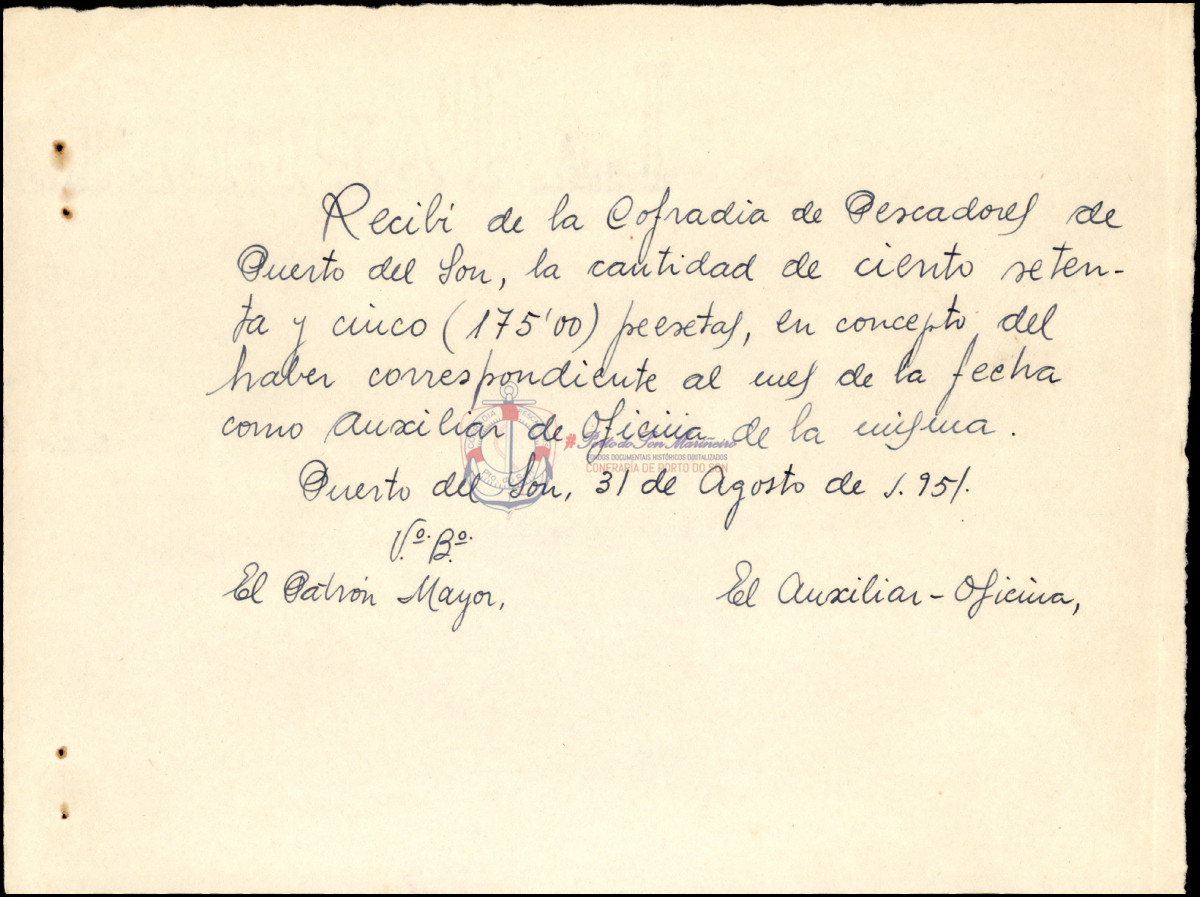 Recibí de la Cofradia de Pescadores de
Puerto del Son, la cantidad de ciento seten-
ta y cinco (175'00) peesetas, en concepto del
haber correspondiente al mes de la fecha
como Auxiliar de Oficina de la misma.
#Porto do Son Mariñeiro
FONDOS DOCUMENTAIS HISTÓRICOS DIXITALIZADOS
CONFRARÍA DE PORTO DO SON
Puerto del Son, 31 de Agosto de 1.951.
Vº. Bº.
El Patrón Mayor,
El Auxiliar-Oficina,